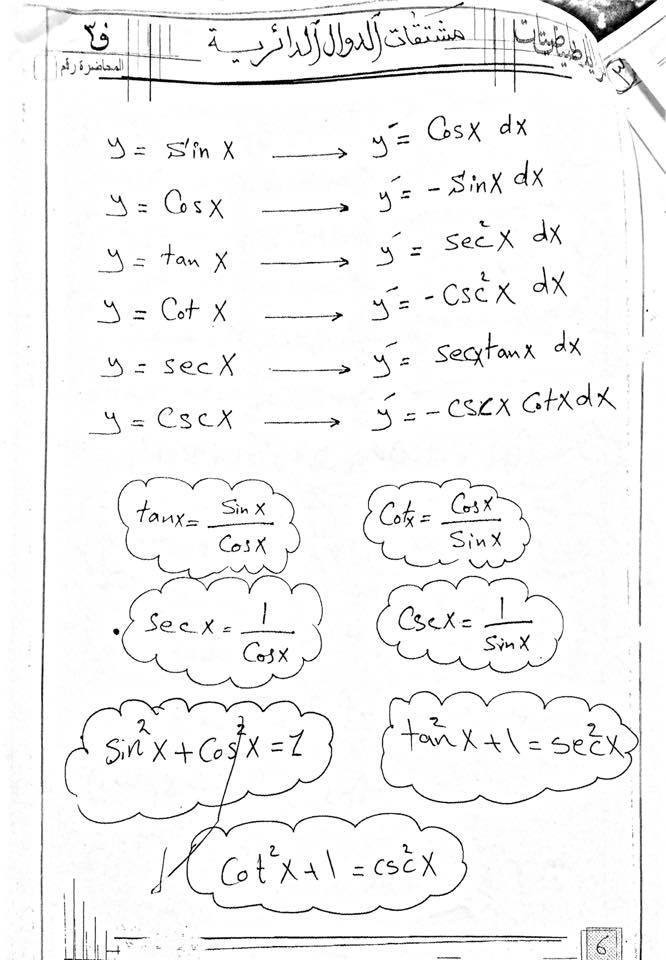 مشتقات الدوال الدائرية
المحاضرة رقم
y = sin x → y' = cos x dx
y = cos x → y' = - sin x dx
y = tan x → y' = sec²x dx
y = cot x → y' = - csc²x dx
y = sec x → y' = secx tanx dx
y = csc x → y' = - cscx cotx dx
tanx = sin x / cos x
cotx = cosx / sin x
sec x = 1 / cosx
csc x = 1 / sinx
sin²x + cos²x = 1
tan²x + 1 = sec²x
cot²x + 1 = csc²x
6